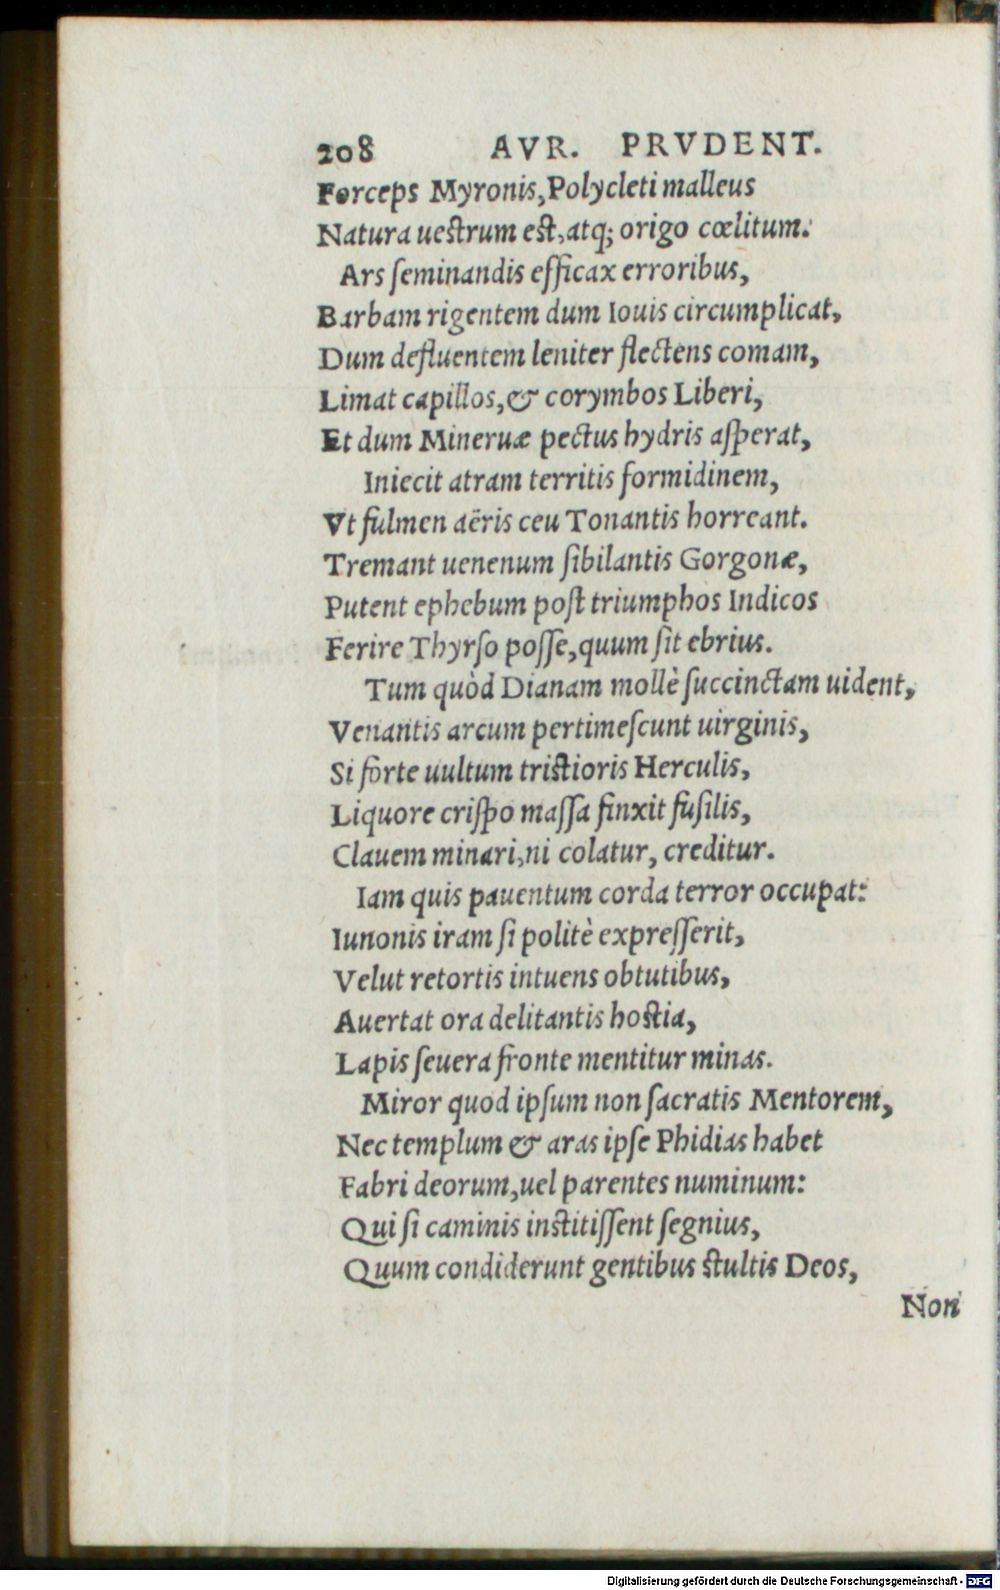 208 AVR. PRVDENT.
Forceps Myronis, Polycleti malleus
Natura uestrum est, atq; origo cœlitum.
Ars ſeminandis efficax erroribus,
Barbam rigentem dum Iouis circumplicat,
Dum defluentem leniter flectens comam,
Limat capillos, & corymbos Liberi,
Et dum Mineruæ pectus hydris aſperat,
Iniecit atram territis formidinem,
Vt fulmen aëris ceu Tonantis horreant.
Tremant uenenum ſibilantis Gorgonæ,
Putent ephebum poſt triumphos Indicos
Ferire Thyrſo poſſe, quum ſit ebrius.
Tum quòd Dianam mollè ſuccinctam uident,
Venantis arcum pertimeſcunt uirginis,
Si forte uultum triſtioris Herculis,
Liquore criſpo maſſa finxit fuſilis,
Clauem minari, ni colatur, creditur.
Iam quis pauentum corda terror occupat:
Iunonis iram ſi politè expreſſerit,
Velut retortis intuens obtutibus,
Auertat ora delitantis hoſtia,
Lapis ſeuera fronte mentitur minas.
Miror quod ipſum non ſacratis Mentorem,
Nec templum & aras ipſe Phidias habet
Fabri deorum, uel parentes numinum:
Qui ſi caminis inſtitiſſent ſegnius,
Quum condiderunt gentibus ſtultis Deos,
Non
Digitalisierung gefördert durch die Deutsche Forschungsgemeinschaft - DFG